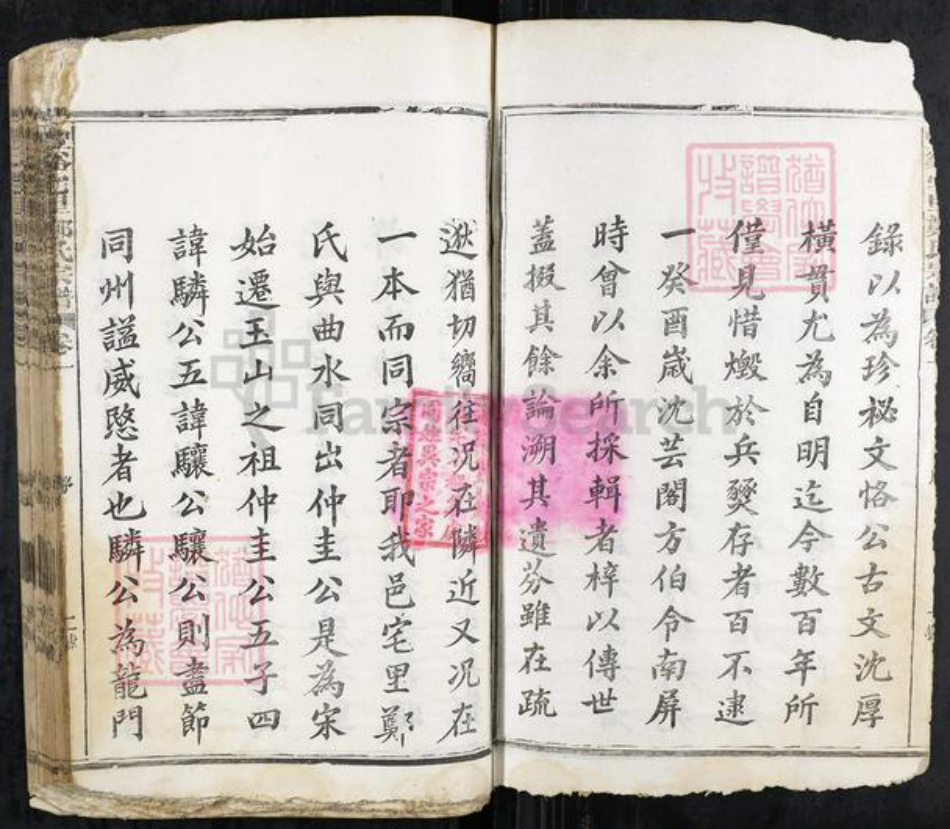 錄以為珍秘文恪公古文沈厚
橫貫尤為自明迄今數百年所
僅見惜燬於兵燹存者百不逮
一癸酉歲沈芸閣方伯令南屏
時曾以余所採輯者梓以傳世
蓋掇其餘論溯其遺芬雖在疏
逖猶切嚮往况在隣近又况在
一本而同宗者耶我邑宅里鄭
氏與曲水同出仲圭公是為宋
始遷玉山之祖仲圭公五子四
諱驎公五諱驤公驤公則盡節
同州謚威愍者也驎公為龍門
FamilySearch